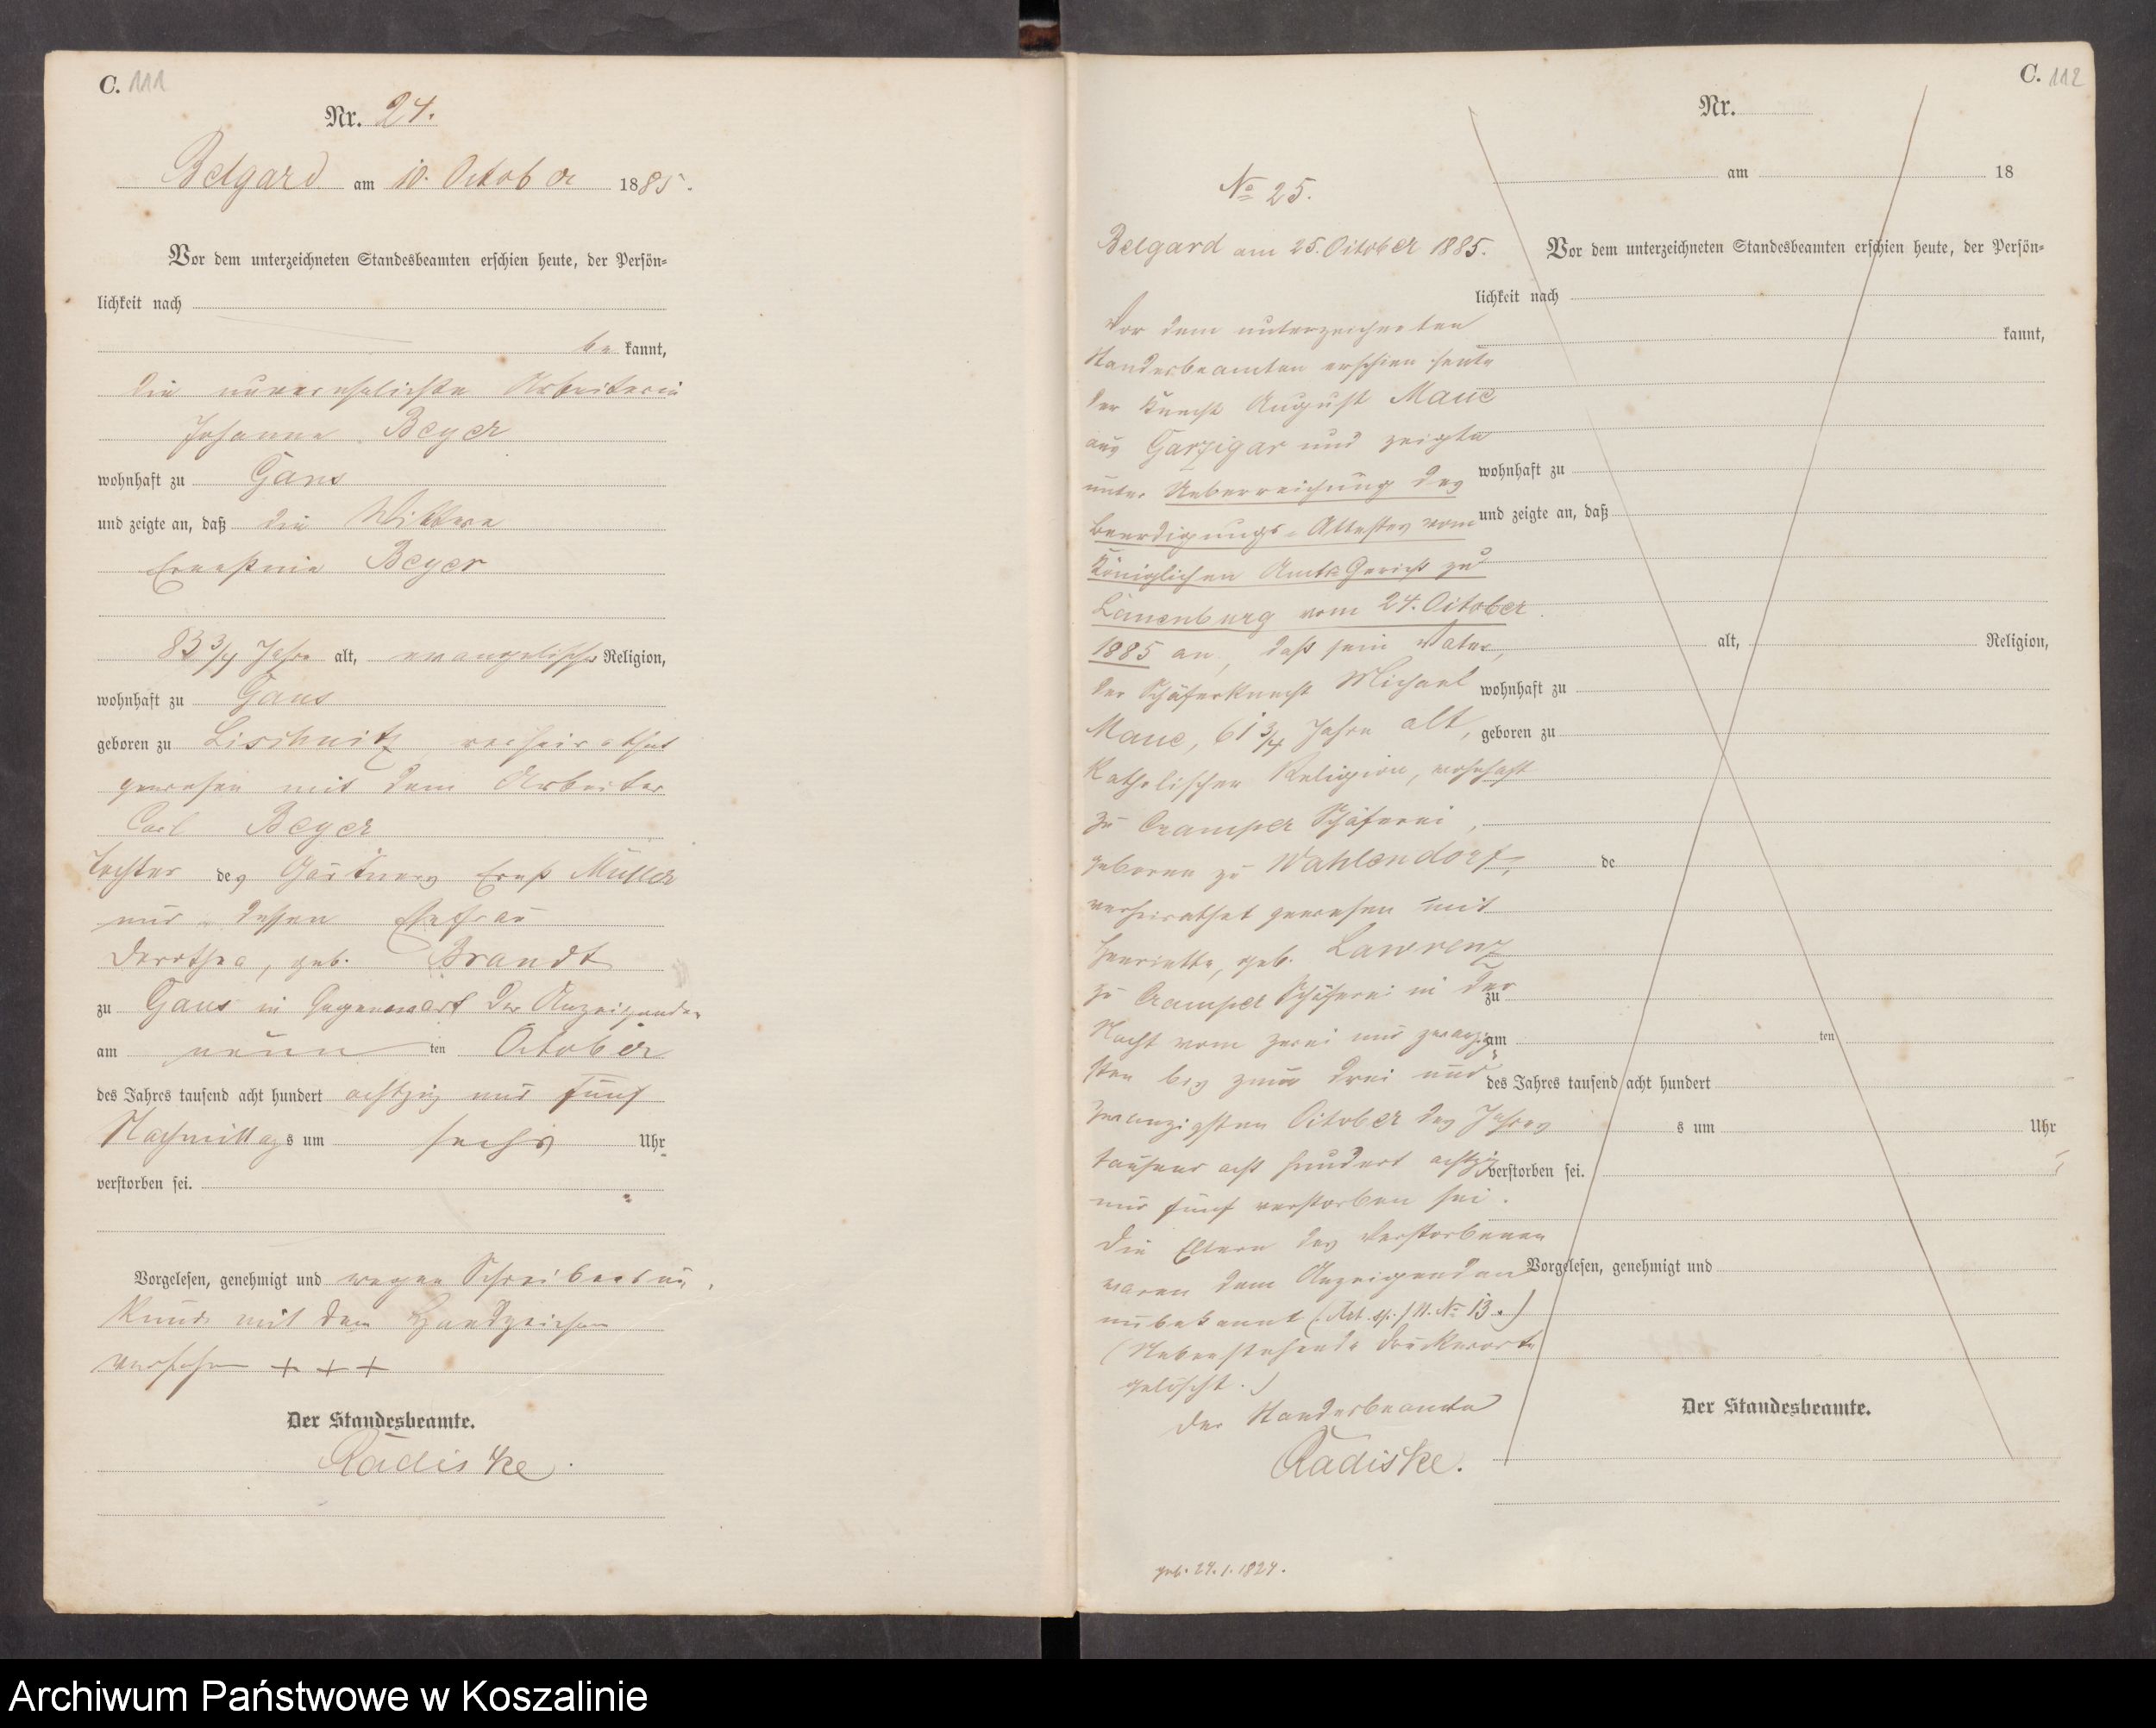 C. 111
Nr. 24.
Belgard am 10. October 1885.
Vor dem unterzeichneten Standesbeamten erschien heute, der Persön-
lichkeit nach
be kannt,
die unverehelichte Arbeiterin
Johanna Beyer
wohnhaft zu Gans
und zeigte an, daß die Wittwe
Ernestine Beyer
83 3/4 Jahre alt, evangelischer Religion,
wohnhaft zu Gans
geboren zu Lischnitz verheirathet
gewesen mit dem Arbeiter
Carl Beyer
Tochter des Gärtners Ernst Müller
und dessen Ehefrau
Dorothea, geb. Brandt
zu Gans in Gegenwart der Anzeigenden
am neun ten October
des Jahres tausend acht hundert achtzig und fünf
Nachmittags um sechs Uhr
verstorben sei.
Vorgelesen, genehmigt und wegen Schreibens un-
kunde mit dem Handzeichen
versehen + + +
Der Standesbeamte.
Radiske.
C. 112
Nr.
am 18
No 25.
Belgard am 25. October 1885.
Vor dem unterzeichneten
Standesbeamten erschien heute
der Knecht August Maue
aus Garzigar und zeigte
unter Ueberreichung des
Beerdigungs-Attestes vom
Königlichen Amts Gericht zu
Lauenburg vom 24. October
1885 an, daß sein Vater,
der Schäferknecht Michael
Maue, 61 3/4 Jahre alt,
katholischer Religion, wohnhaft
zu Cramper Schäferei,
geboren zu Wahlendorf,
verheirathet gewesen mit
Henriette, geb. Lawrenz
zu Cramper Schäferei in der
Nacht vom zwei und zwanzig-
sten bis zum drei und
zwanzigsten October des Jahres
tausend acht hundert achtzig
und fünf verstorben sei.
Die Eltern des Verstorbenen
waren dem Anzeigenden
unbekannt No 13.)
(Nebenstehende Druckworte
gelöscht.)
Der Standesbeamte
Radiske.
geb. 24.1.1824.
Vor dem unterzeichneten Standesbeamten erschien heute, der Persön-
lichkeit nach
kannt,
wohnhaft zu
und zeigte an, daß
alt, Religion,
wohnhaft zu
geboren zu
de
zu
am ten
des Jahres tausend acht hundert
s um Uhr
verstorben sei.
Vorgelesen, genehmigt und
Der Standesbeamte.
Archiwum Państwowe w Koszalinie